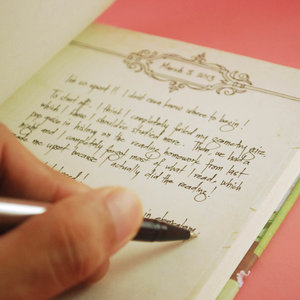 March 5, 2013
I'm so upset!! I don't even know where to begin!
To start off, I think I completely failed my geometry quiz,
which I know I should've studied more. Then we had a
pop quiz in history on the reading homework from last
night and I completely forgot most of what I read, which
me upset because I actually did the reading!
in elementary